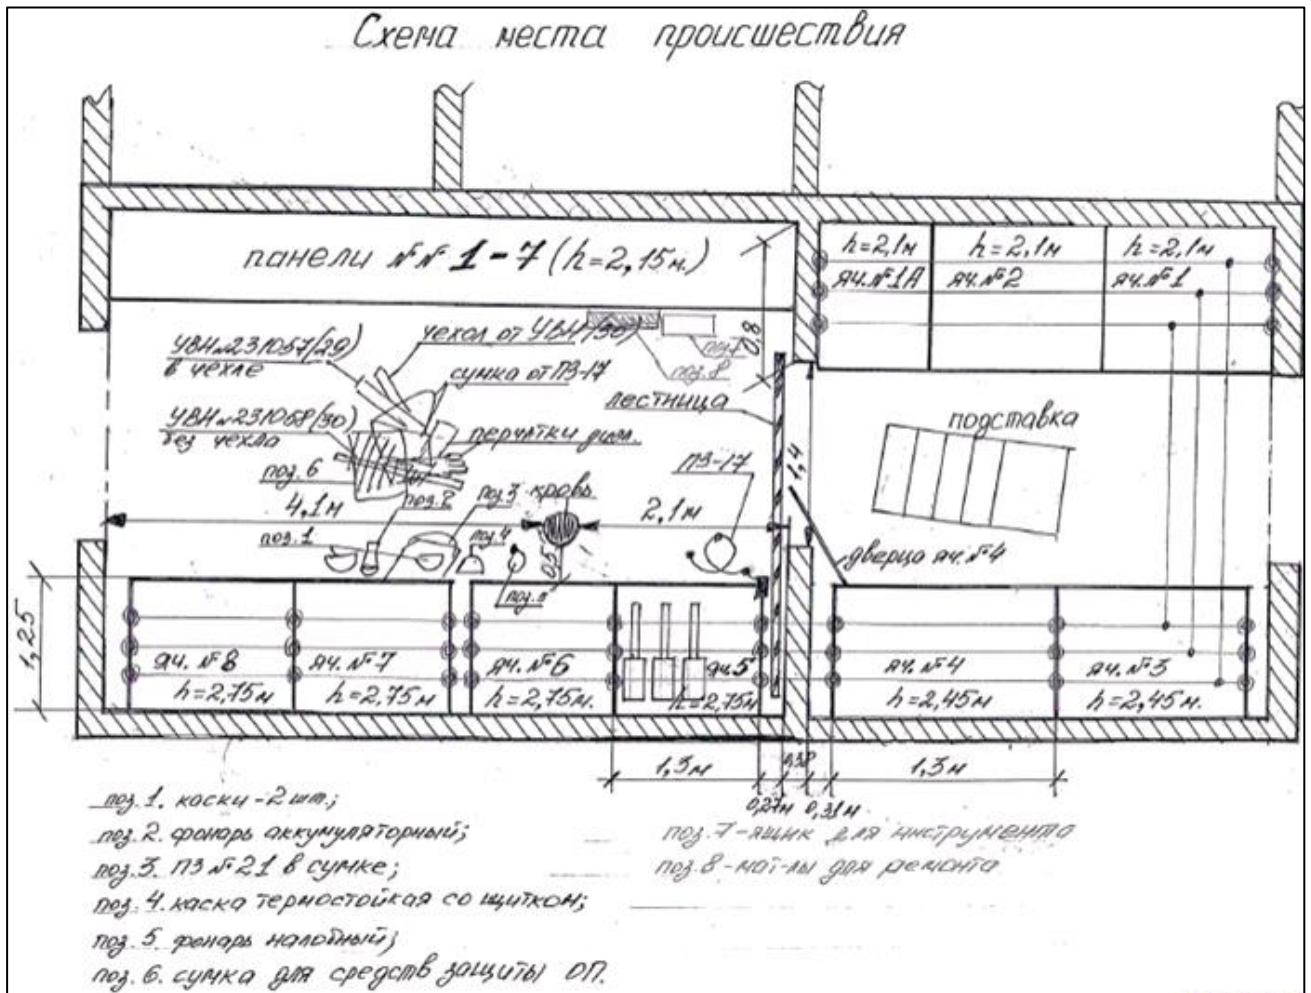 Схема места происшествия
панели №№ 1-7 (h=2,15м.)
h=2,1м
h=2,1м
h=2,1м
яч.№1А
яч.№2
яч.№1
0,8
УВН№231057/(29)
в чехле
чехол от УВН/(30)
сумка от ПЗ-17
поз.7
поз.8
лестница
УВН№231068/(30)
без чехла
перчатки диэл.
подставка
ПЗ-17
1,4
поз.6
поз.2
поз.3
кровь
4,1м
2,1м
поз.1
поз.4
0,5
дверца яч.№4
1,25
яч.№8
яч.№7
яч.№6
яч.5
яч.№4
яч.№3
h=2,75м
h=2,75м
h=2,75м.
h=2,75м
h=2,45м
h=2,45м.
1,3м
0,38
1,3м
0,27м
0,31м.
поз.1. каски-2шт.;
поз.2. фонарь аккумуляторный;
поз.3. ПЗ№21 в сумке;
поз.4. каска термостойкая со щитком;
поз.5 фонарь налобный;
поз.6. сумка для средств защиты ОП.
поз.7-ящик для инструмента
поз.8-мат-лы для ремонта